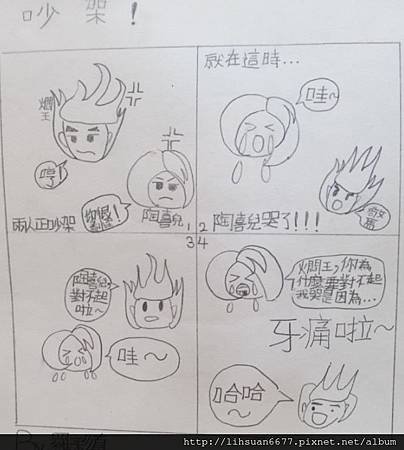 吵架!
哼!
兩人正吵架
陶喜兒
1
就在這時...
哇~
陶喜兒哭了!!!
2
3
陶喜兒
對不起
啦~
哇~
4
你為
什麼要對不起
我哭是因為...
牙痛啦~
哈哈
~
By
http://lihsuan6677.pixnet.net/album